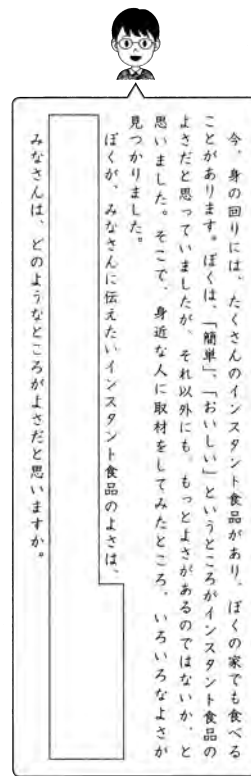 今、身の回りには、たくさんのインスタント食品があり、ぼくの家でも食べる
ことがあります。ぼくは、「簡単」、「おいしい」というところがインスタント食品の
よさだと思っていましたが、それ以外にも、もっとよさがあるのではないか、と
思いました。そこで、身近な人に取材をしてみたところ、いろいろなよさが
見つかりました。
ぼくが、みなさんに伝えたいインスタント食品のよさは、
みなさんは、どのようなところがよさだと思いますか。